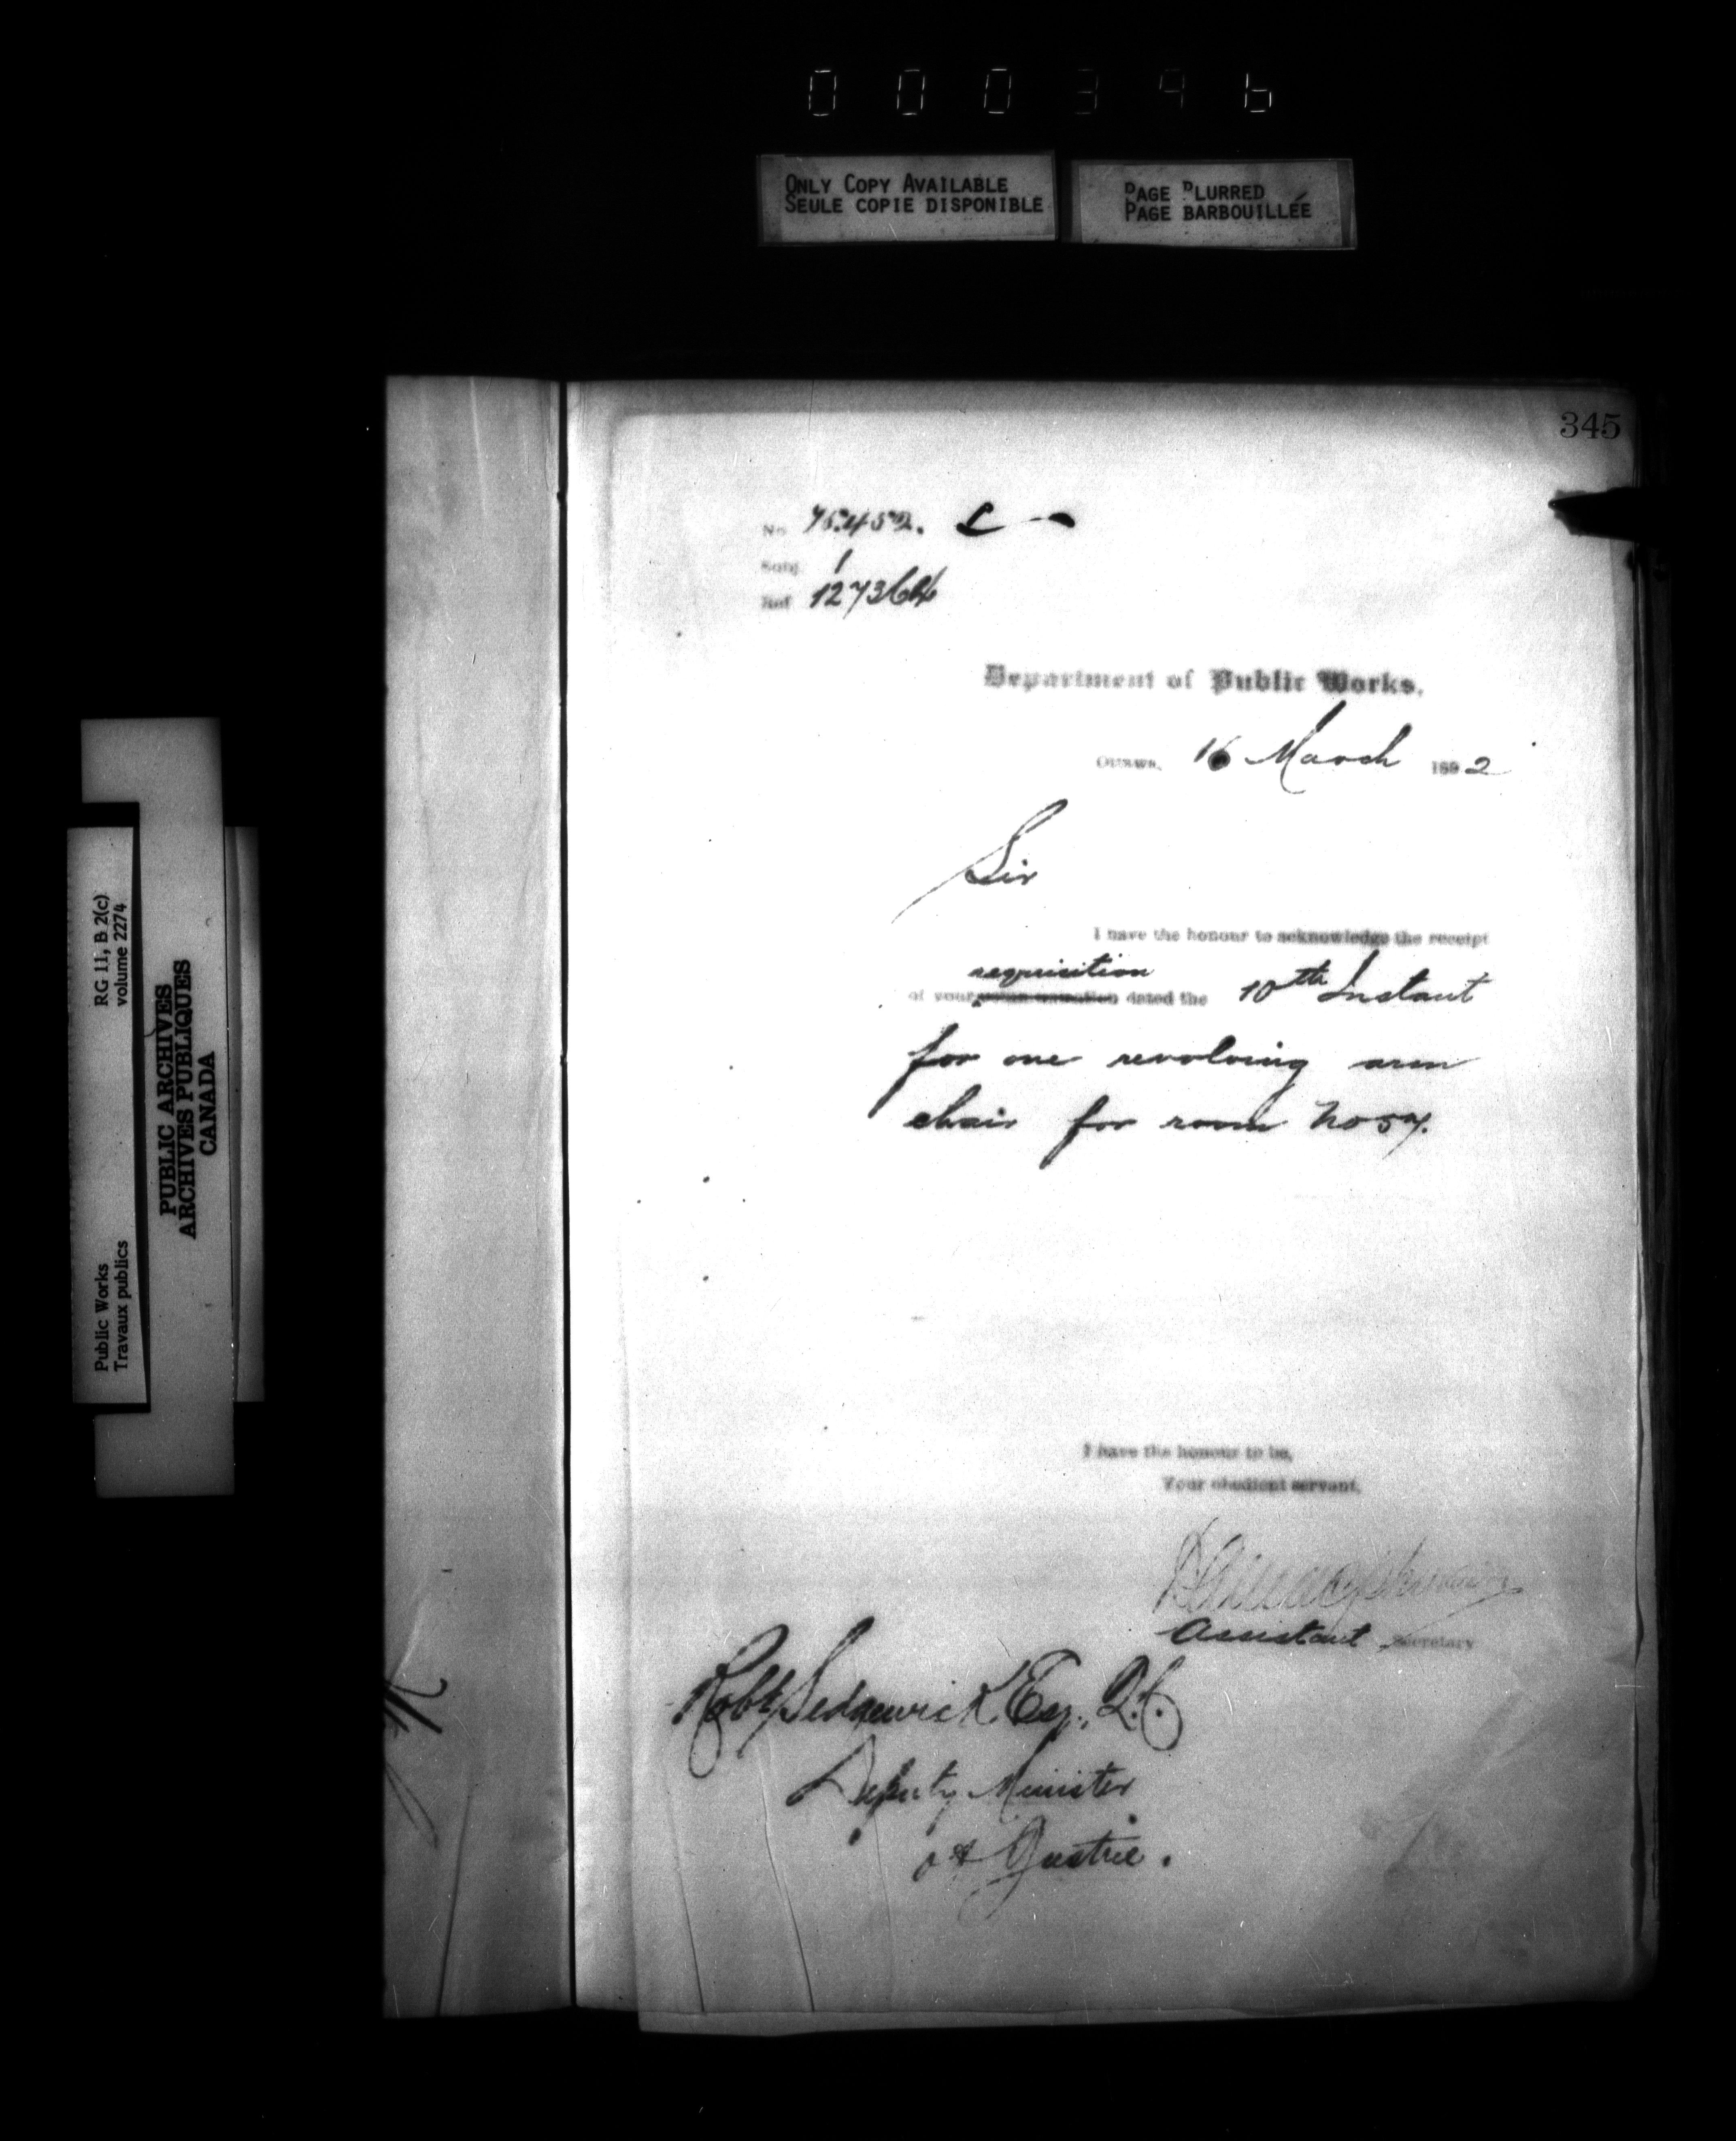 000396
ONLY COPY AVAILABLE
SEULE COPIE DISPONIBLE
PAGE BLURRED
PAGE BARBOUILLÉE
345
No 75452.
Subj. 1
Ref 127364
Department of Public Works.
Ottawa, 16 March 1892
Sir
I have the honour to acknowledge the receipt
requisition
of your communication dated the 10th Instant
for one revolving arm
chair for room No 57.
I have the honour to be,
Your obedient servant,
Assistant Secretary
Robt Sedgewick Esq., Q.C.
Deputy Minister
of Justice.
RG 11, B 2(c)
volume 2274
Public Works
Travaux publics
PUBLIC ARCHIVES
ARCHIVES PUBLIQUES
CANADA